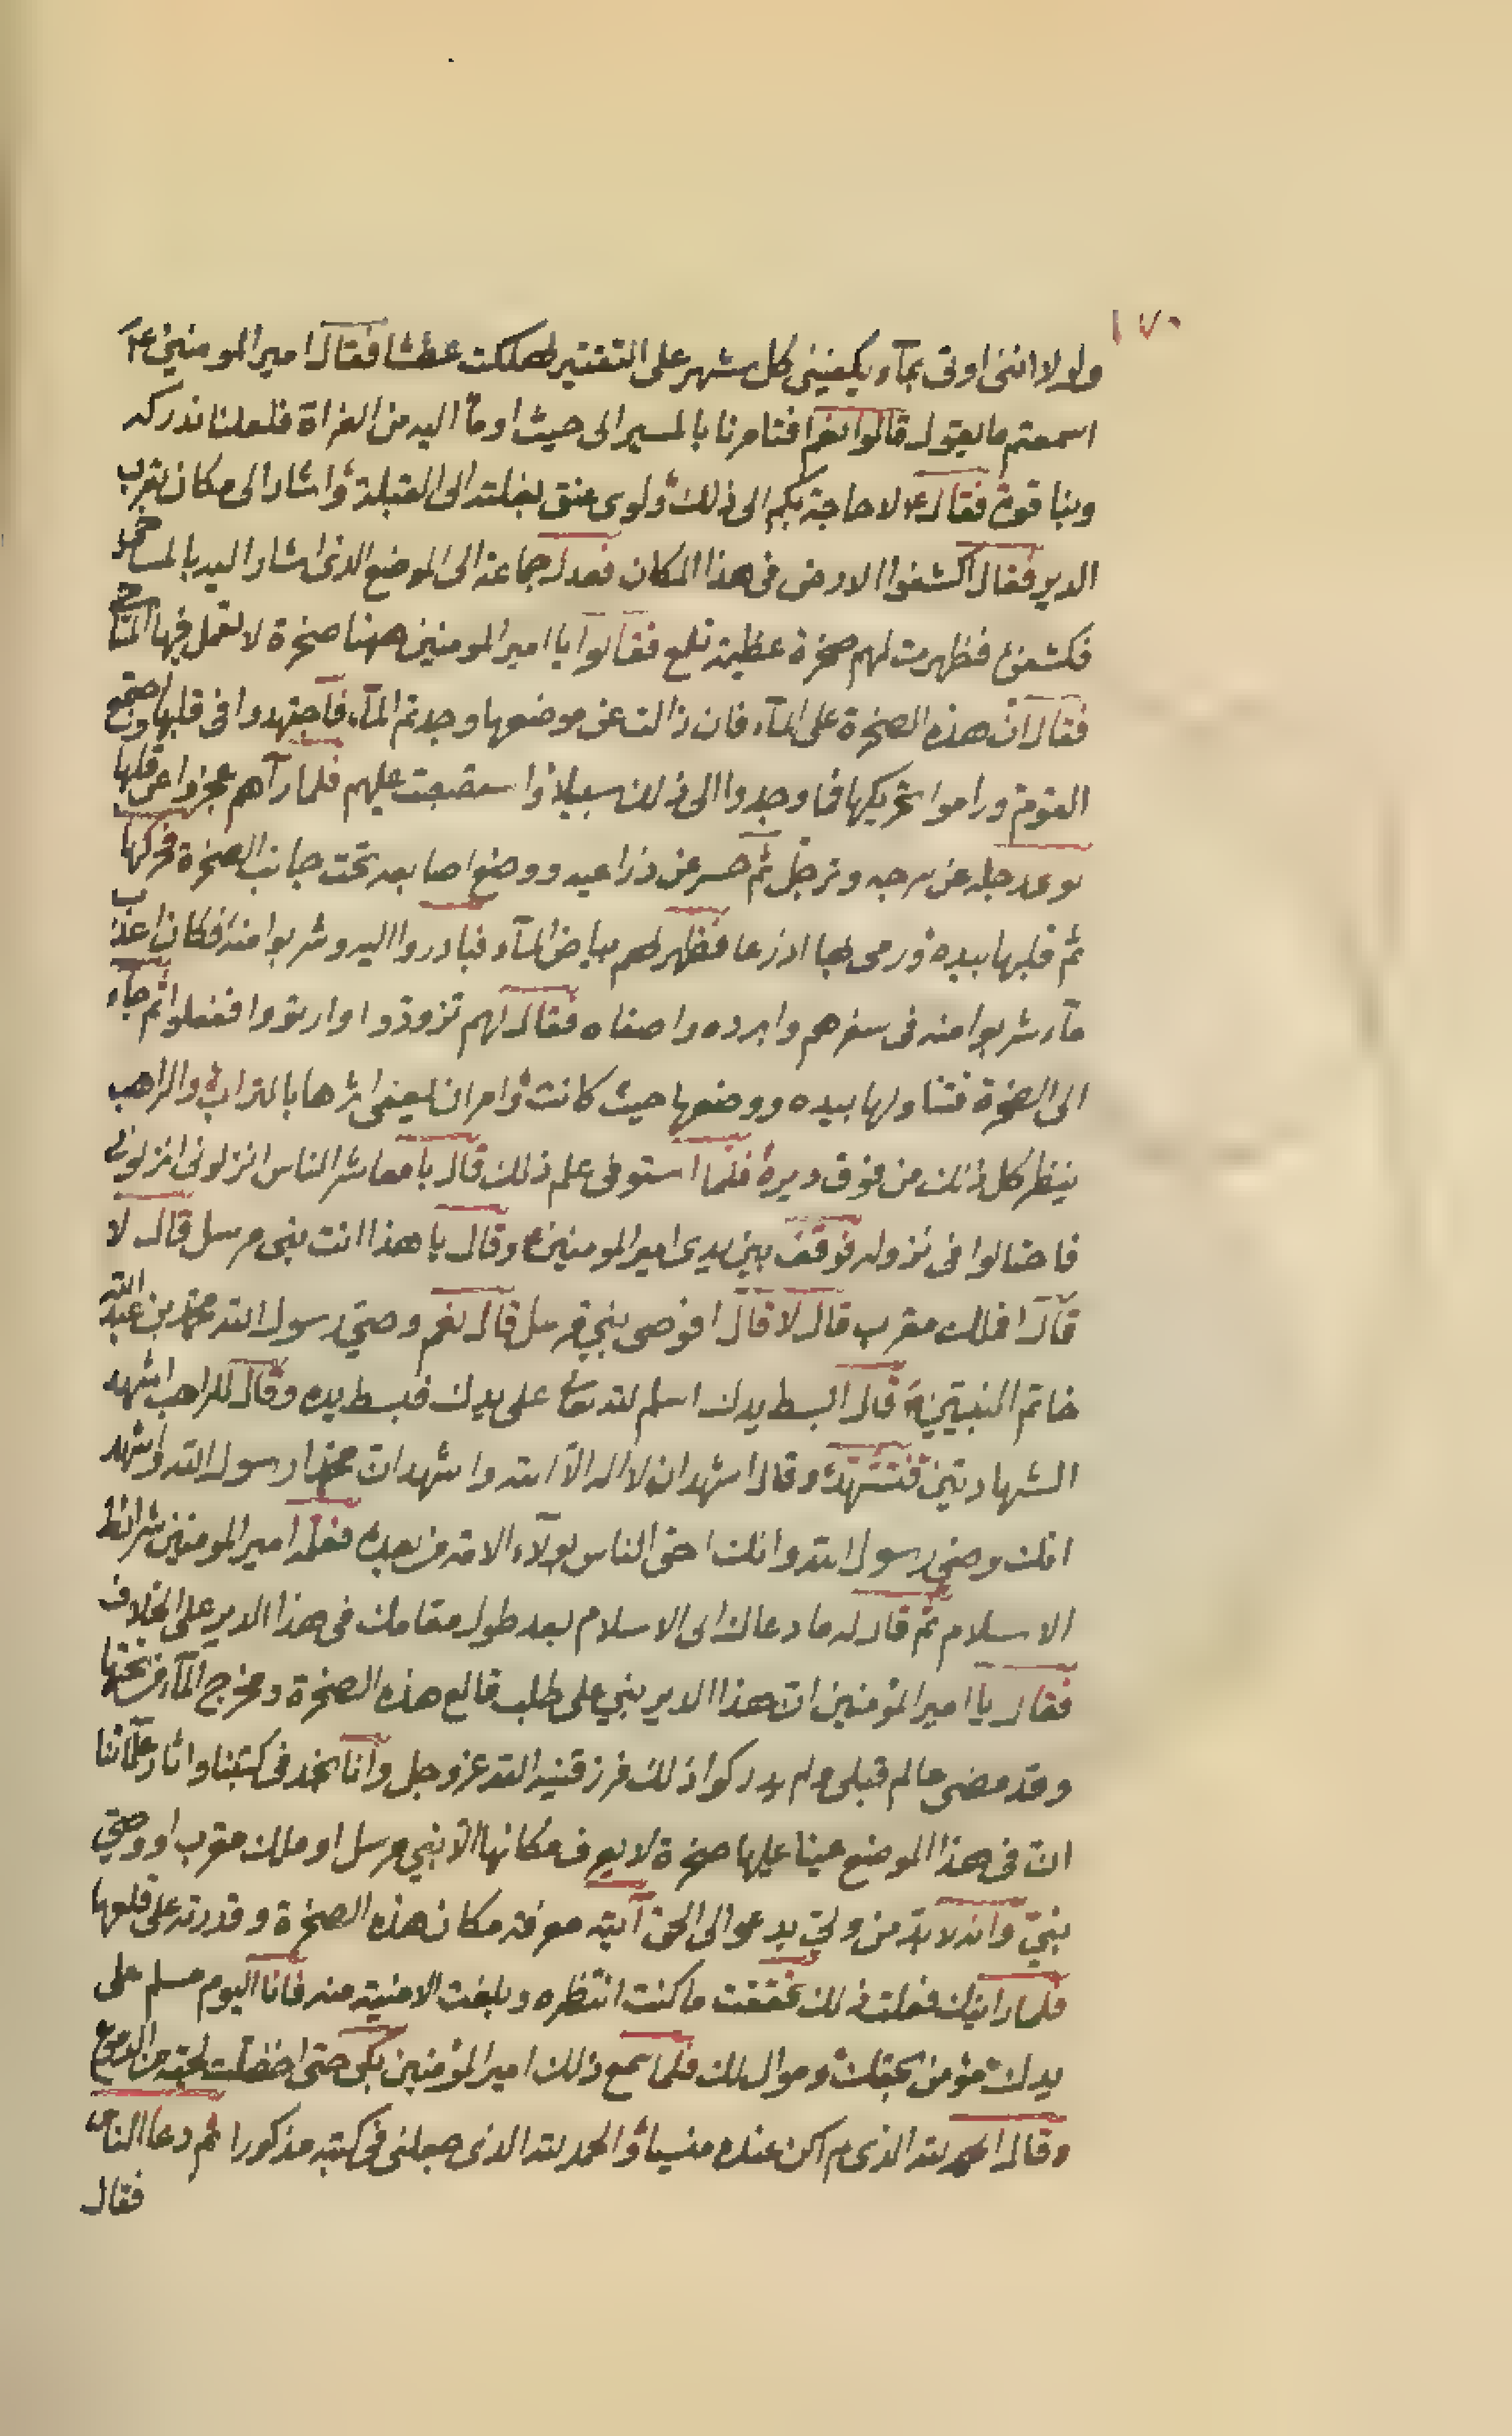 ١٧٠
ولولا اننى اوتى بمآء يكفينى كل شهر على التقتير لهلكت عطشا فقال امير المومنين ع
اسمعتم ما يقول قالوا نعم افتامرنا بالمسير الى حيث اومأ اليه من الفراة فلعلنا ندركه
وبنا قوة فقال ع لا حاجة بكم الى ذلك ولوى عنق بغلته الى القبلة واشار الى مكان بقرب
الدير فقال اكشفوا الارض فى هذا المكان فعدل جماعة الى الموضع الذى اشار اليه بالمساحى
فكشفوه فظهرت لهم صخرة عظيمة تلمع فقالوا يا امير المومنين ههنا صخرة لا تعمل فيها المساحى
فقال ان هذه الصخرة على المآء فان زالت عن موضعها وجدتم المآء فاجتهدوا فى قلبها واجتمع
القوم وراموا تحريكها فما وجدوا الى ذلك سبيلا واستصعبت عليهم فلما رآهم عجزوا عن قلبها
لوى رجله عن سرجه وترجل ثم حسر عن ذراعيه ووضع اصابعه تحت جانب الصخرة فحركها
ثم قلبها بيده ورمى بها اذرعا فظهر لهم بياض المآء فبادروا اليه وشربوا منه فكان اعذب
مآء شربوا منه فى سفرهم وابرده واصفاه فقال لهم تزودوا وارتووا ففعلوا ثم جآء
الى الصخرة فتناولها بيده ووضعها حيث كانت وامر ان يعفى اثرها بالتراب والراهب
ينظر كل ذلك من فوق ديره فلما استوفى علم ذلك قال يا معاشر الناس انزلونى انزلونى
فاحتالوا فى نزوله فوقف بين يدى امير المومنين ع وقال يا هذا انت نبى مرسل قال لا
قال افملك مقرب قال لا قال افوصى نبى مرسل قال نعم وصى رسول الله محمد بن عبد الله
خاتم النبيين قال ابسط يدك اسلم لله تعالى على يدك فبسط يده وقال للراهب اشهد
الشهادتين فتشهد وقال اشهد ان لا اله الا الله واشهد ان محمدا رسول الله واشهد
انك وصى رسول الله وانك احق الناس بولآء الامة من بعده فعلمه امير المومنين شرائط
الاسلام ثم قال له ما دعاك الى الاسلام بعد طول مقامك فى هذا الدير على الخلاف
فقال يا امير المؤمنين ان هذا الدير بنى على طلب قالع هذه الصخرة ومخرج المآء من تحتها
وقد مضى عالم قبلى ولم يدركوا ذلك فرزقنيه الله عز وجل وانا نجد فى كتبنا واثار علمآئنا
ان فى هذا الموضع عينا عليها صخرة لا يعرف مكانها الا نبى مرسل او ملك مقرب او وصى
نبى وانه لابد من ولى يدعو الى الحق آيته معرفة مكان هذه الصخرة وقدرته على قلعها
فلما رايتك فعلت ذلك تحققت ما كنت انتظره وبلغت الامنية منه فانا اليوم مسلم على
يدك مؤمن بحقك وموال لك فلما سمع ذلك امير المؤمنين بكى حتى اخضلت لحيته من الدموع
وقال الحمد لله الذى لم اكن عنده منسيا والحمد لله الذى جعلنى فى كتبه مذكورا ثم دعا الناس
فقال